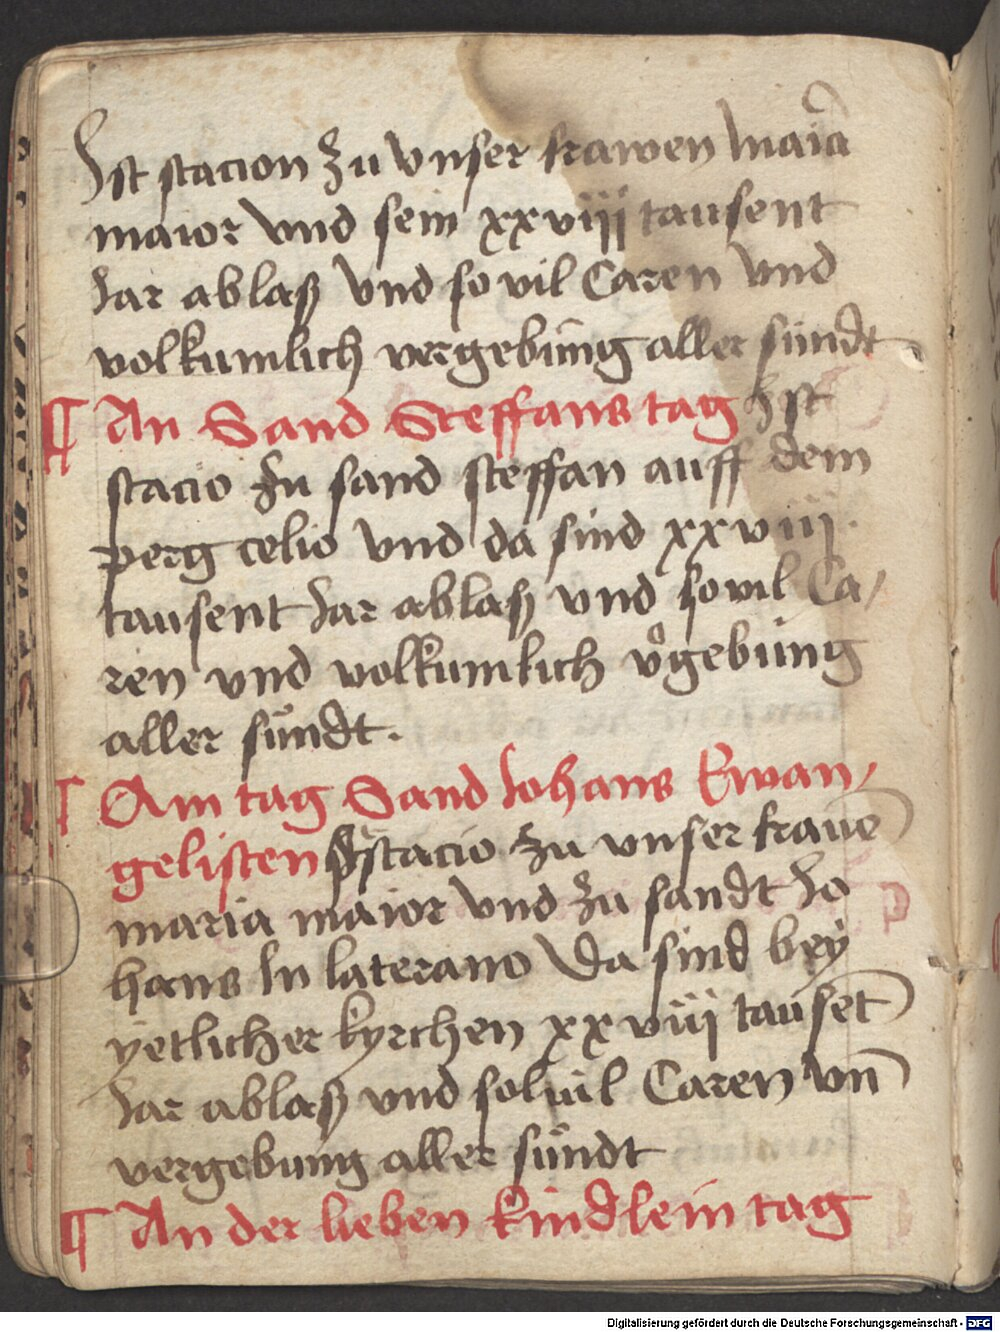 Ist stacion zu vnser frawen maia
maior vnd sein xxviij tausent
Jar ablaß vnd so vil Caren vnd
volkumlich vergebung aller sündt
¶ An Sand Steffans tag Ist
stacio zu sand steffan auff dem
perg celio vnd da sind xxviij
tausent Jar ablaß vnd so vil Ca/
ren vnd volkumlich v̊gebung
aller sündt.
¶ Am tag Sand Johans Ewan/
gelisten stacio zu vnser frauē
maria maior vnd zu sandt Jo
hans In laterano Da sind bey
yetlicher kyrchen xxviij tausēt
Jar ablaß vnd so vil Caren vn̄
vergebung aller sündt
¶ An der lieben kindlein tag
Digitalisierung gefördert durch die Deutsche Forschungsgemeinschaft - DFG